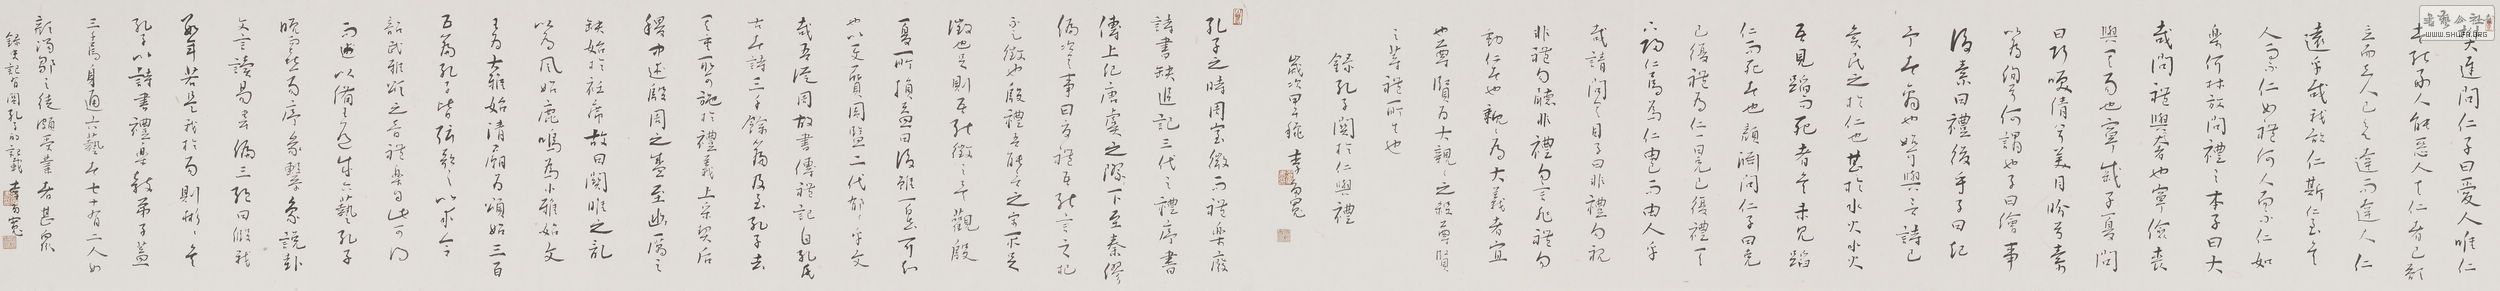 樊遲問仁子曰愛人唯仁
者能好人能惡人夫仁者己欲
立而立人己欲達而達人仁
遠乎哉我欲仁斯仁至矣
人而不仁如禮何人而不仁如
樂何林放問禮之本子曰大
哉問禮與其奢也寧儉喪
與其易也寧戚子夏問
曰巧笑倩兮美目盼兮素
以為絢兮何謂也子曰繪事
後素曰禮後乎子曰起
予者商也始可與言詩已
矣民之於仁也甚於水火水火
吾見蹈而死者矣未見蹈
仁而死者也顏淵問仁子曰克
己復禮為仁一日克己復禮天
下歸仁焉為仁由己而由人乎
哉請問其目子曰非禮勿視
非禮勿聽非禮勿言非禮勿
動仁者人也親親為大義者宜
也尊賢為大親親之殺尊賢
之等禮所生也
錄孔子關於仁與禮
歲次甲
孔子之時周室微而禮樂廢
詩書缺追跡三代之禮序書
傳上紀唐虞之際下至秦繆
編次其事曰夏禮吾能言之杞
不足徵也殷禮吾能言之宋不足
徵也足則吾能徵之矣觀殷
夏所損益曰後雖百世可知
也以一文一質周監二代郁郁乎文
哉吾從周故書傳禮記自孔氏
古者詩三千餘篇及至孔子去
其重取可施於禮義上采契后
稷中述殷周之盛至幽厲之
缺始於衽席故曰關雎之亂
以為風始鹿鳴為小雅始文
王為大雅始清廟為頌始三百
五篇孔子皆弦歌之以求合
韶武雅頌之音禮樂自此可得
而述以備王道成六藝孔子
晚而喜易序彖繫象說卦
文言讀易韋編三絕曰假我
數年若是我於易則彬彬矣
孔子以詩書禮樂教弟子蓋
三千焉身通六藝者七十有二人如
顏濁鄒之徒頗受業者甚眾
錄史記中關孔子的記載
WWW.SHUFA.ORG